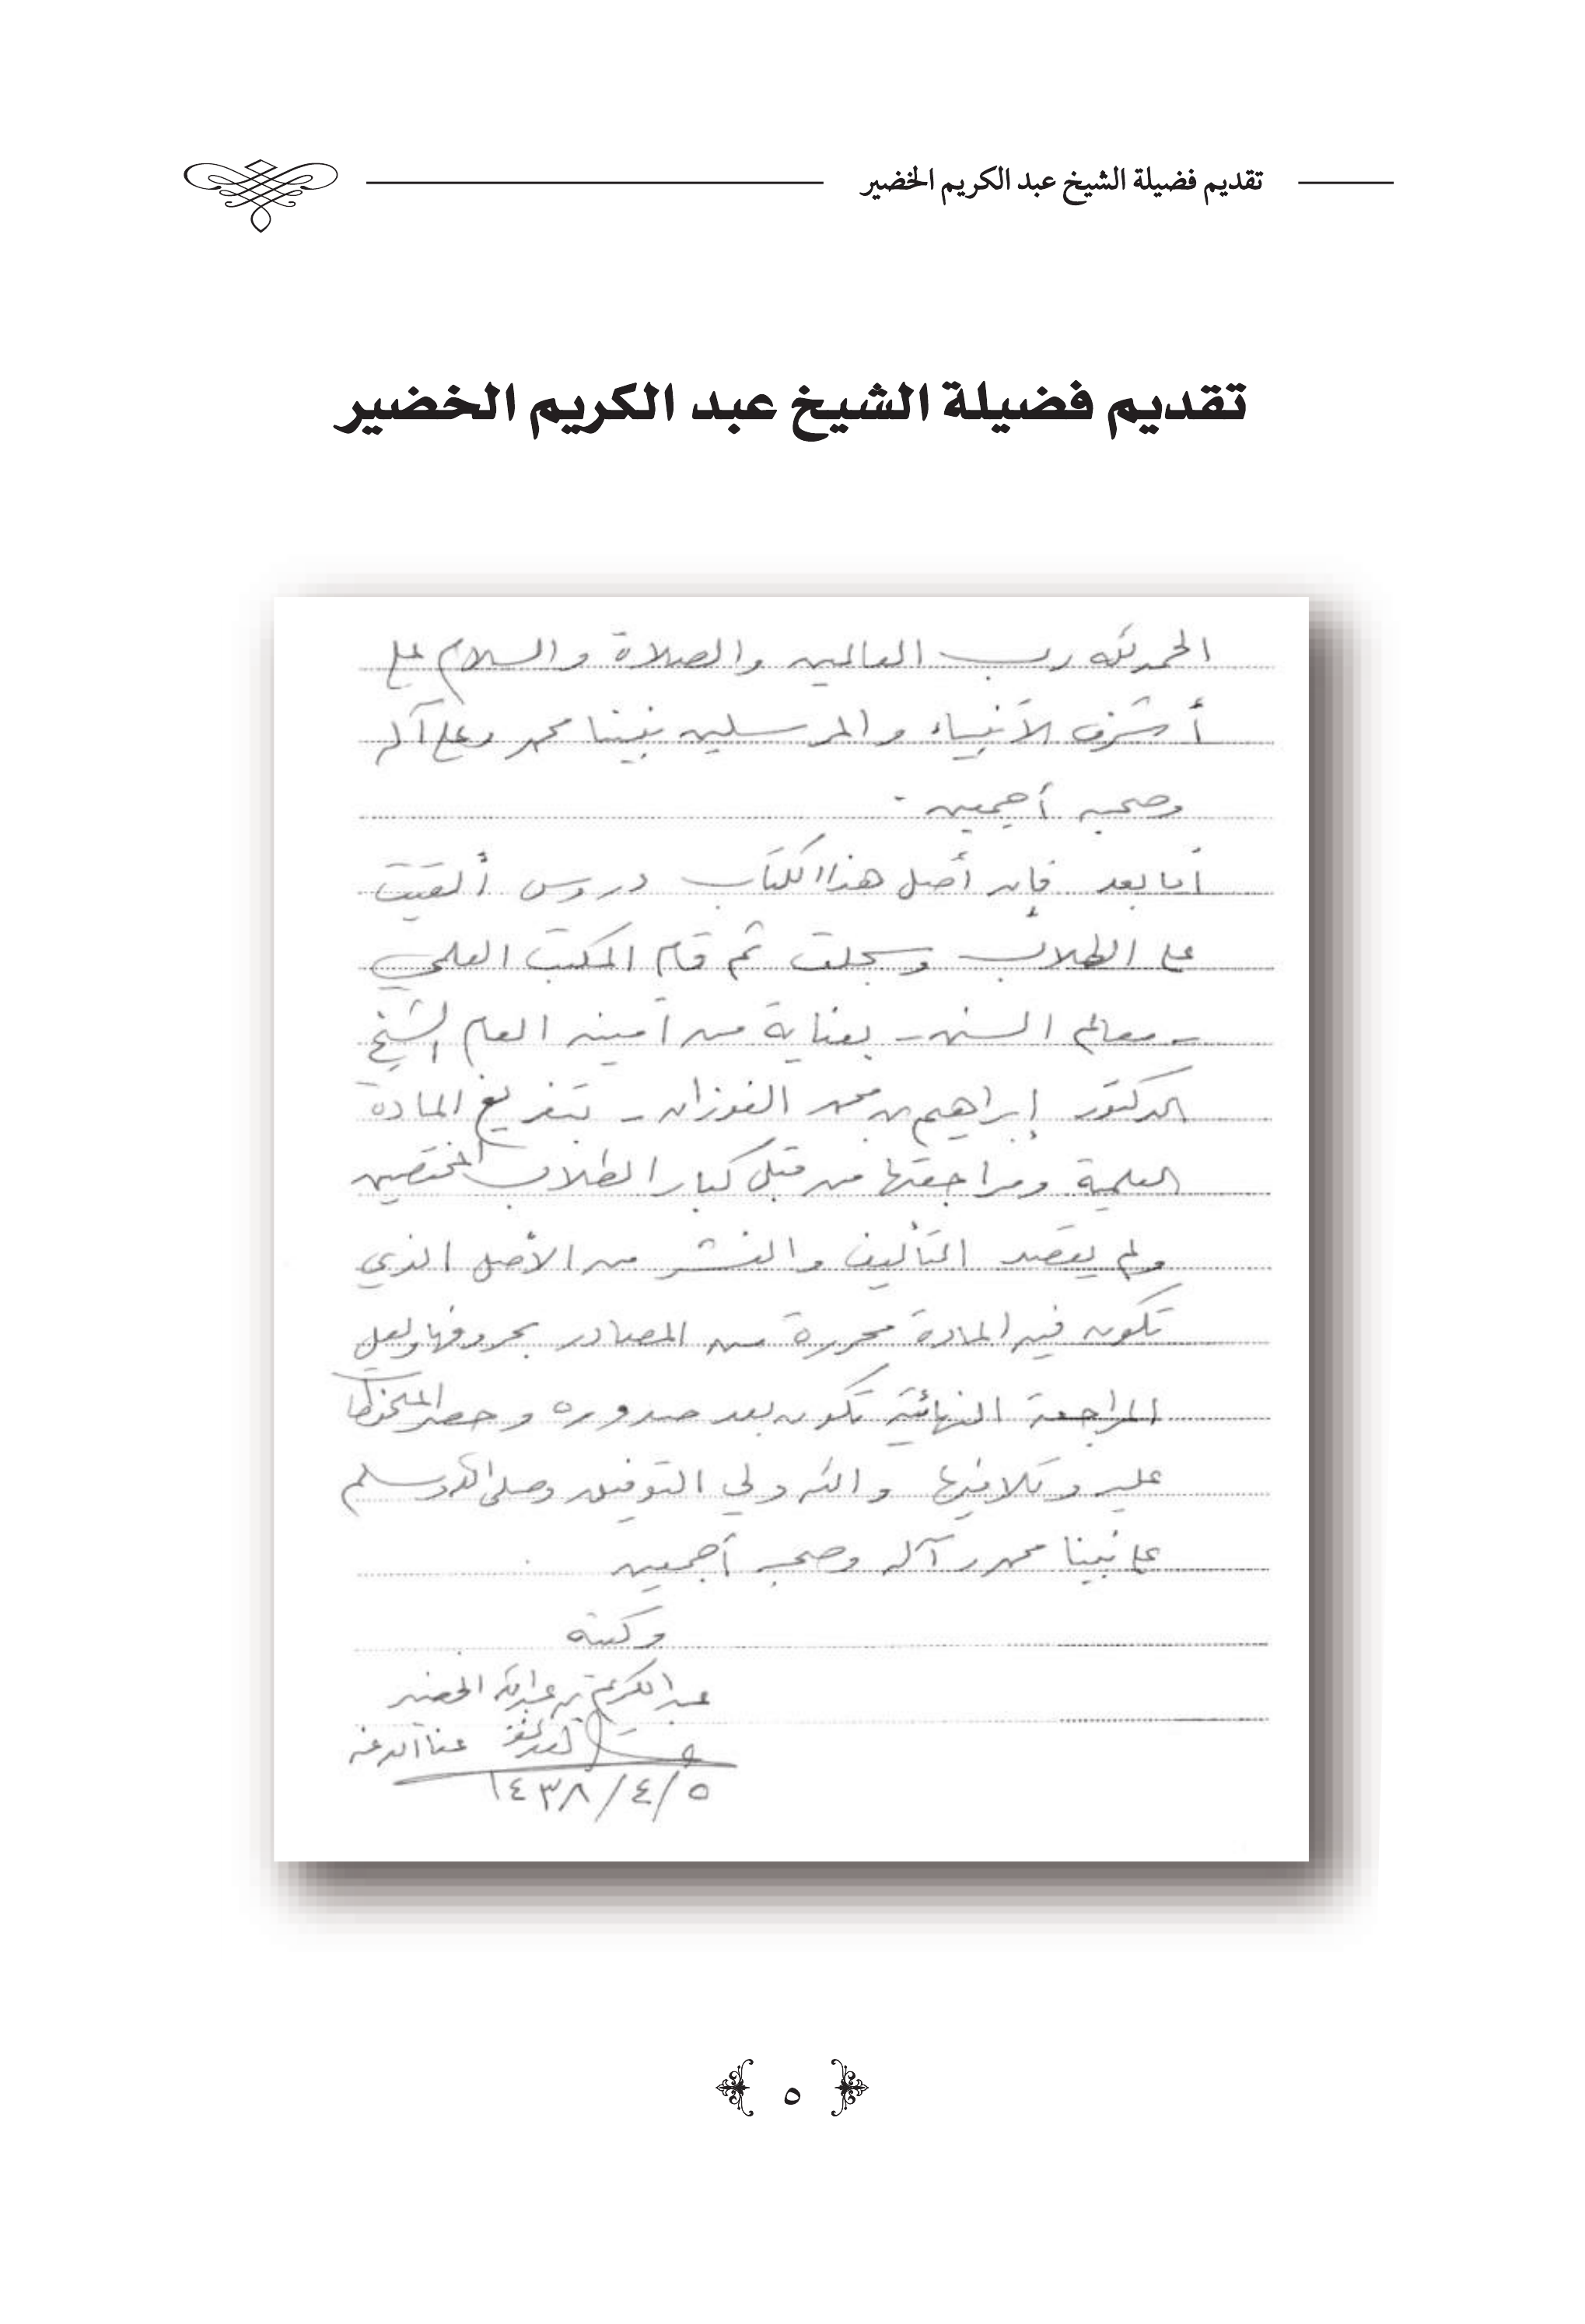 تقديم فضيلة الشيخ عبد الكريم الخضير
تقديم فضيلة الشيخ عبد الكريم الخضير
الحمد لله رب العالمين والصلاة والسلام على
أشرف الأنبياء والمرسلين نبينا محمد وعلى آله
وصحبه أجمعين .
أما بعد فإن أصل هذا الكتاب دروس ألقيت
على الطلاب وسجلت ثم قام المكتب العلمي
- معالم السنن - بعناية من أمينه العام الشيخ
الدكتور إبراهيم بن محمد الفوزان - بتفريغ المادة
العلمية ومراجعتها من قبل كبار الطلاب المختصين
ولم يقصد التأليف والنشر من الأصل الذي
تكون فيه المادة محررة من المصادر بحروفها ولعل
المراجعة النهائية تكون بعد صدوره وحصر الملحوظات
عليه وتلافيها والله ولي التوفيق وصلى الله وسلم
على نبينا محمد وآله وصحبه أجمعين .
وكتبه
عبد الكريم بن عبد الله الخضير
عفا الله عنه
١٤٣٨/٤/٥
٥